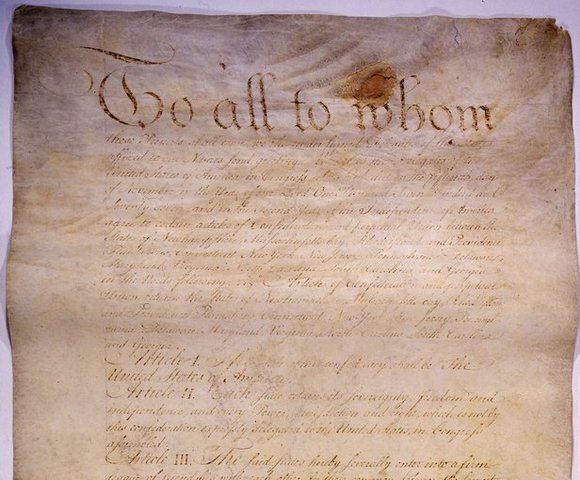 To all to whom
these Presents shall come, we the under signed Delegates of the States
affixed to our Names send greeting. Whereas the Delegates of the
United States of America in Congress assembled did on the fifteenth day
of November in the Year of our Lord One Thousand Seven Hundred and
Seventy seven, and in the Second Year of the Independence of America
agree to certain articles of Confederation and perpetual Union between the
States of Newhampshire, Massachusetts-bay, Rhodeisland and Providence
Plantations, Connecticut, New York, New Jersey, Pennsylvania, Delaware,
Maryland, Virginia, North-Carolina, South-Carolina and Georgia
in the Words following, viz. Articles of Confederation and perpetual
Union between the States of Newhampshire, Massachusetts-bay, Rhodeisland
and Providence Plantations, Connecticut, New-York, New-Jersey, Pennsyl-
vania, Delaware, Maryland, Virginia, North-Carolina, South-Carolina
and Georgia.
Article I. The Stile of this confederacy shall be "The
United States of America."
Article II. Each state retains its sovereignty, freedom and
independence, and every Power, Jurisdiction and right, which is not by
this confederation expressly delegated to the United States, in Congress
assembled.
Article III. The said states hereby severally enter into a firm
league of friendship with each other, for their common defence, the